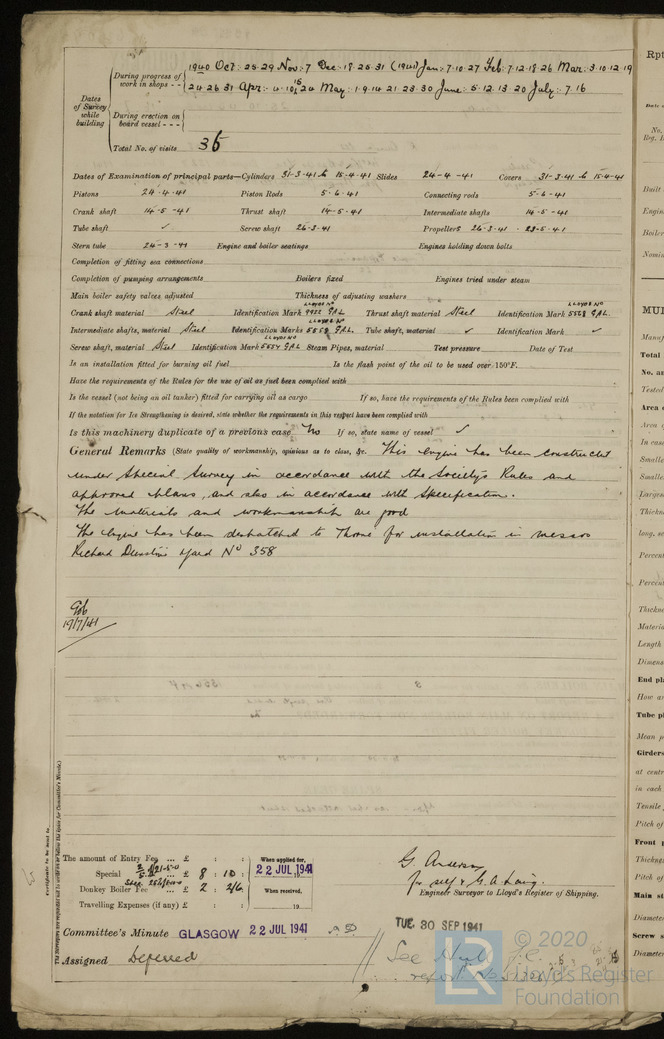 1940 Oct: 25·29 Nov: 7 Dec: 18·25·31 (1941) Jan: 7·10·27 Feb: 7·12·18·26 Mar: 3·10·12·19
During progress of work in shops - -
24·26·31 Apr: 4·10·15·24 May: 1·9·14·21·23·30 June: 5·12·13·20 July: 7·16
Dates of Survey while building
During erection on board vessel - - -
Total No. of visits 36
Dates of Examination of principal parts—Cylinders 31-3-41 & 15-4-41 Slides 24-4-41 Covers 31-3-41 & 15-4-41
Pistons 24-4-41 Piston Rods 5-6-41 Connecting rods 5-6-41
Crank shaft 14-5-41 Thrust shaft 14-5-41 Intermediate shafts 14-5-41
Tube shaft ✓ Screw shaft 26-3-41 Propellers 26-3-41 · 23-5-41
Stern tube 24-3-41 Engine and boiler seatings Engines holding down bolts
Completion of fitting sea connections
Completion of pumping arrangements Boilers fixed Engines tried under steam
Main boiler safety valves adjusted Thickness of adjusting washers
Crank shaft material Steel Identification Mark LLOYDS No 9922 GAL Thrust shaft material Steel Identification Mark LLOYDS No 5568 GAL
Intermediate shafts, material Steel Identification Marks LLOYDS No 5559 GAL Tube shaft, material ✓ Identification Mark ✓
Screw shaft, material Steel Identification Mark LLOYDS No 5554 GAL Steam Pipes, material Test pressure Date of Test
Is an installation fitted for burning oil fuel Is the flash point of the oil to be used over 150°F.
Have the requirements of the Rules for the use of oil as fuel been complied with
Is the vessel (not being an oil tanker) fitted for carrying oil as cargo If so, have the requirements of the Rules been complied with
If the notation for Ice Strengthening is desired, state whether the requirements in this respect have been complied with
Is this machinery duplicate of a previous case No If so, state name of vessel ✓
General Remarks (State quality of workmanship, opinions as to class, &c. This engine has been constructed
under Special Survey in accordance with the Society's Rules and
approved plans, and also in accordance with specification.
The materials and workmanship are good
The engine has been despatched to Thorne for installation in messrs
Richard Dunston Yard No 358
19/7/41
Certificate to be sent to
The Surveyors are requested not to write on or below the space for Committee's Minute.
The amount of Entry Fee ... £ : :
Special ... £ 8 : 10 :
Donkey Boiler Fee ... £ 2 : 2/6 :
Travelling Expenses (if any) £ : :
When applied for, 22 JUL 1941
When received, 19
G. Anderson
for self & G. A. Laing.
Engineer Surveyor to Lloyd's Register of Shipping.
Committee's Minute GLASGOW 22 JUL 1941
TUE. 30 SEP 1941
Assigned Deferred
See Hull J.E.
report No
© 2020
Lloyd's Register
Foundation
LR